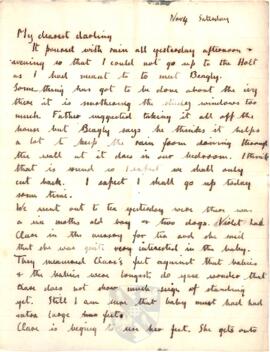 Nov 4 Saturday
My dearest darling
It poured with rain all yesterday afternoon &
evening so that I could not go up to the Holt
as I had meant to to meet Beagly.
Some thing has got to be done about the ivy
there it is smothering the windows too
much. Father suggested taking it all off the
house but Beagly says he thinks it helps
a lot to keep the rain from driving through
the wall as it does in our bedroom. I think
that is sound so I expect we shall only
cut back. I expect I shall go up today
some time.
We went out to tea yesterday were there was
a six months old boy & two dogs. Violet had
Clare in the nursery for tea and she said
that she was quite very interested in the baby.
They measured Clare's feet against that babies
& the babies were longest do you wonder that
Clare does not show much sign of standing
yet. Still I am sure that baby must have had
extra large feet.
Clare is beging to use her feet. She gets onto